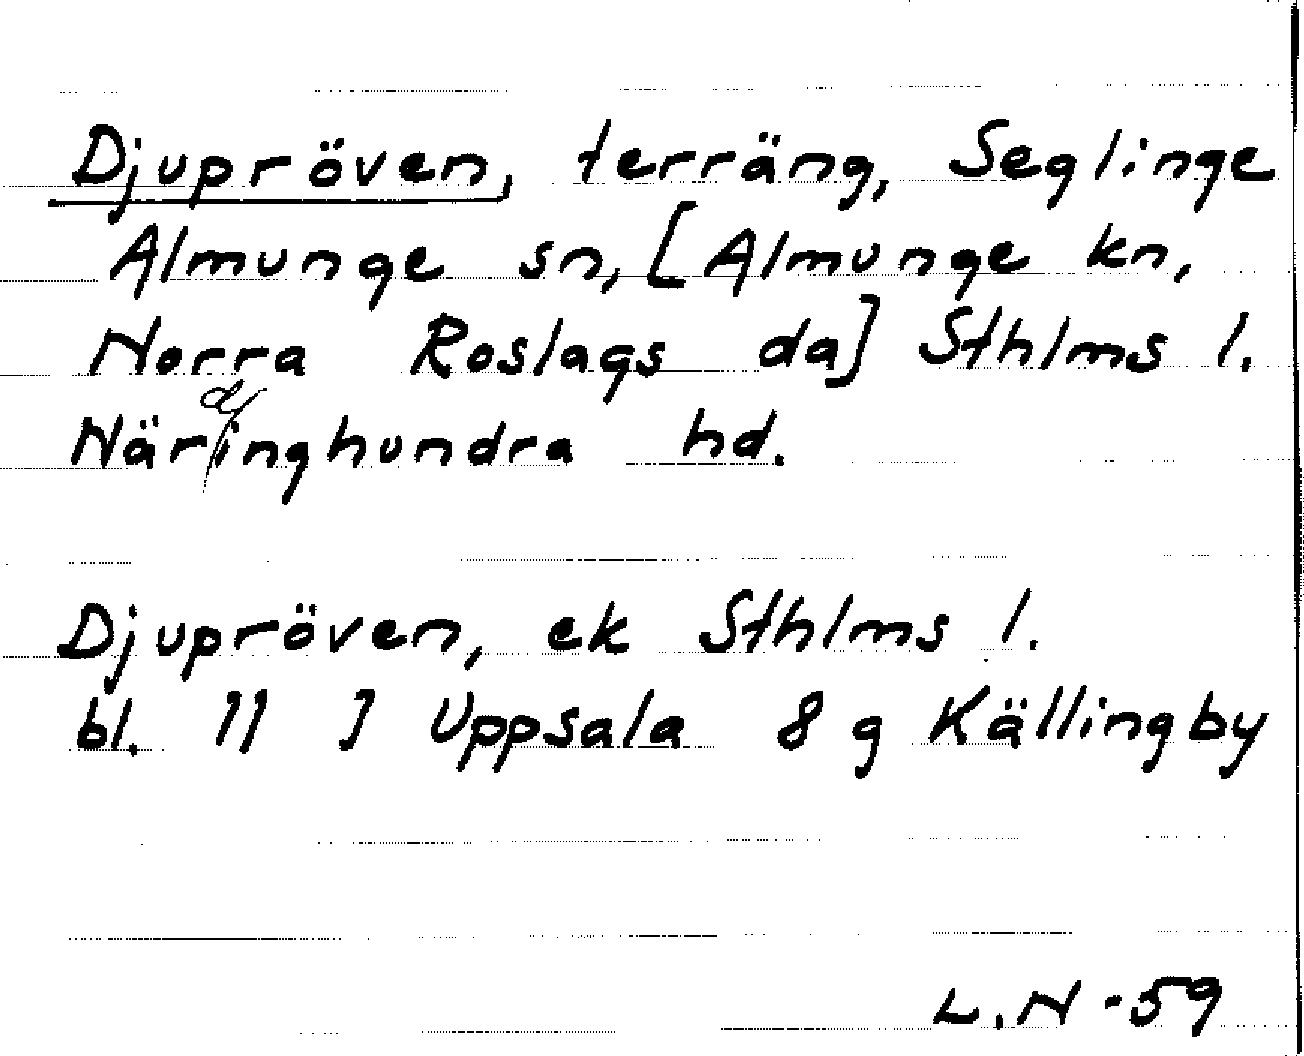 Djupröven, terräng, Seglinge
Almunge sn, [Almunge kn,
Norra Roslags da] Sthlms l.
Närdinghundra hd.
Djupröven, ek Sthlms l.
bl. 11 J Uppsala 8 g Källingby
L.N -59